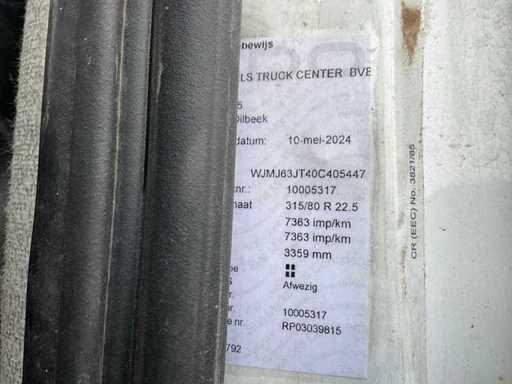 bewijs
LS TRUCK CENTER BVB
5
Dilbeek
datum: 10-mei-2024
WJMJ63JT40C405447
nr.: 10005317
maat 315/80 R 22.5
7363 imp/km
7363 imp/km
3359 mm
Afwezig
r. 10005317
e nr. RP03039815
792
CR (EEC) No. 3821/85